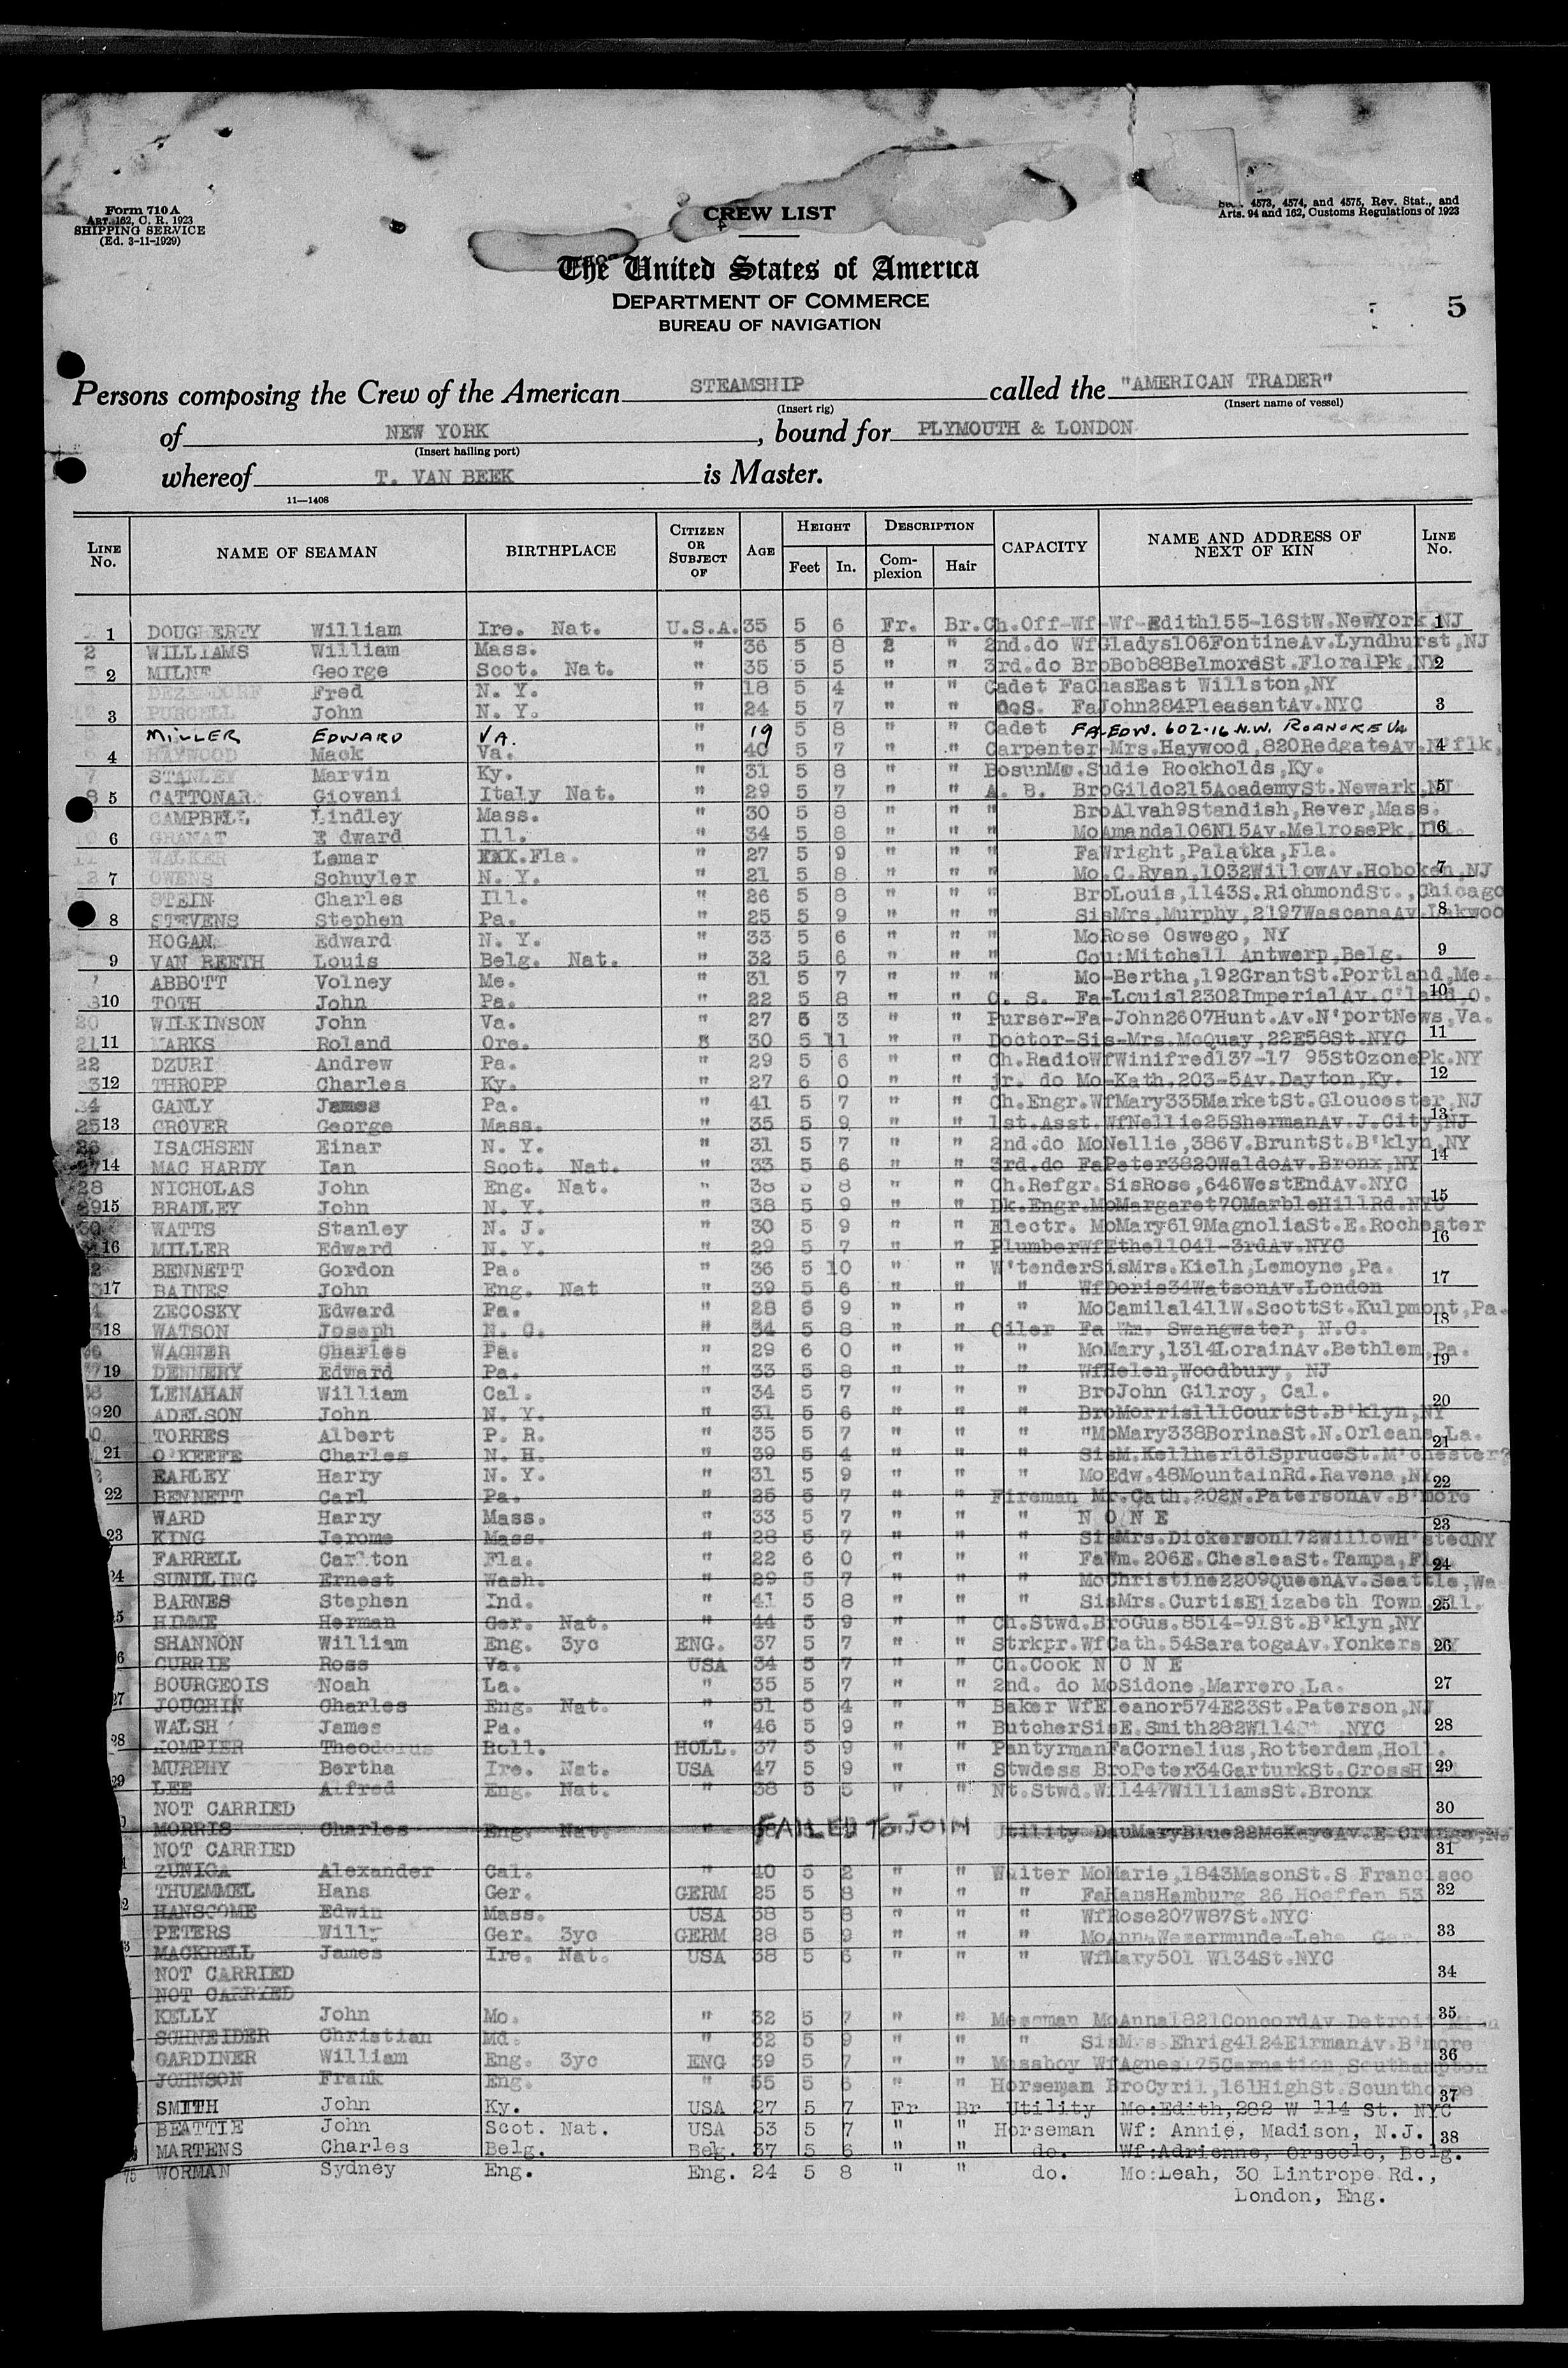 Form 710 A
ART. 162, C. R. 1923
SHIPPING SERVICE
(Ed. 3-11-1929)
CREW LIST
4573, 4574, and 4575, Rev. Stat., and
Arts. 94 and 162, Customs Regulations of 1923
The United States of America
DEPARTMENT OF COMMERCE
BUREAU OF NAVIGATION
5
Persons composing the Crew of the American STEAMSHIP called the "AMERICAN TRADER"
(Insert rig) (Insert name of vessel)
of NEW YORK, bound for PLYMOUTH & LONDON
(Insert hailing port)
whereof T. VAN BEEK is Master.
11—1408
LINE No. NAME OF SEAMAN BIRTHPLACE CITIZEN OR SUBJECT OF AGE HEIGHT Feet In. DESCRIPTION Complexion Hair CAPACITY NAME AND ADDRESS OF NEXT OF KIN LINE No.
1 DOUGHERTY William Ire. Nat. U.S.A. 35 5 6 Fr. Br. Ch.Off-Wf-Wf-Edith155-16StW.NewYork,NJ 1
2 WILLIAMS William Mass. " 36 5 8 2 " 2nd.do WfGladys106FontineAv.Lyndhurst,NJ
3 2 MILNE George Scot. Nat. " 35 5 5 " " 3rd.do BroBob88BelmoreSt.FloralPk,NY 2
DEZENDORF Fred N. Y. " 18 5 4 " " Cadet FaChasEast Willston,NY
3 PURCELL John N. Y. " 24 5 7 " " FaJohn284PleasantAv.NYC 3
MILLER EDWARD VA. 19 5 8 " " Cadet FA-EDW. 602-16 N.W. ROANOKE VA
6 4 HAYWOOD Mack Va. " 40 5 7 " " Carpenter-Mrs.Haywood,820RedgateAv.N'flk, 4
7 STANLEY Marvin Ky. " 31 5 8 " " Sudie Rockholds,Ky.
8 5 CATTONAR Giovani Italy Nat. " 29 5 7 " " A. B. BroGildo215AcademySt.Newark,NJ 5
CAMPBELL Lindley Mass. " 30 5 8 " " " BroAlvah9Standish,Rever,Mass.
6 GRANAT E dward Ill. " 34 5 8 " " " MoAmanda106N15Av.MelrosePk,Ill. 6
11 WALKER Lamar XXX.Fla. " 27 5 9 " " " FaWright,Palatka,Fla.
12 7 OWENS Schuyler N. Y. " 21 5 8 " " " Mo.C.Ryan,1032WillowAv.Hoboken,NJ 7
STEIN Charles Ill. " 26 5 8 " " " BroLouis,1143S.RichmondSt.,Chicago
8 STEVENS Stephen Pa. " 25 5 9 " " " SisMrs,Murphy,2197WascanaAv.Lakwoo 8
HOGAN Edward N. Y. " 33 5 6 " " " MoRose Oswego, NY
9 VAN REETH Louis Belg. Nat. " 32 5 6 " " " Cou:Mitchell Antwerp,Belg. 9
ABBOTT Volney Me. " 31 5 7 " " " Mo-Bertha,192GrantSt.Portland,Me.
10 TOTH John Pa. " 22 5 8 " " O. S. Fa-Louis12302ImperialAv.C'land,O. 10
20 WILKINSON John Va. " 27 6 3 " " Purser-Fa-John2607Hunt.Av.N'portNews,Va.
21 11 MARKS Roland Ore. " 30 5 11 " " Doctor-Sis-Mrs.McQuay,22E58St.NYC 11
22 DZURI Andrew Pa. " 29 5 6 " " Ch.RadioWfWinifred137-17 95StOzonePk.NY
12 THROPP Charles Ky. " 27 6 0 " " jr. do Mo-Kath.203-5Av.Dayton,Ky. 12
GANLY James Pa. " 41 5 7 " " Ch.Engr.WfMary335MarketSt.Gloucester,NJ
25 13 GROVER George Mass. " 35 5 9 " " 1st.Asst.WfNellie25ShermanAv.J.City,NJ 13
26 ISACHSEN Einar N. Y. " 31 5 7 " " 2nd.do MoNellie,386V.BruntSt.B'klyn,NY
27 14 MAC HARDY Ian Scot. Nat. " 33 5 6 " " 3rd.do FaPeter3820WaldoAv.Bronx,NY 14
28 NICHOLAS John Eng. Nat. " 38 5 8 " " Ch.Refgr.SisRose,646WestEndAv.NYC
29 15 BRADLEY John N. Y. " 38 5 9 " " Dk.Engr.MoMargaret70MarbleHillRd.NYC 15
30 WATTS Stanley N. J. " 30 5 9 " " Electr. MoMary619MagnoliaSt.E.Rochester
16 MILLER Edward N. Y. " 29 5 7 " " PlumberWfEthel1041-3rdAv.NYC 16
BENNETT Gordon Pa. " 36 5 10 " " W'tenderSisMrs.Kielh,Lemoyne,Pa.
17 BAINES John Eng. Nat " 39 5 6 " " " WfDoris34WatsonAv.London 17
ZECOSKY Edward Pa. " 28 5 9 " " " MoCamila1411W.ScottSt.Kulpmont,Pa.
18 WATSON Joseph N. C. " 34 5 8 " " Oiler Fa Wm. Swangwater, N.C. 18
WAGNER Charles Pa. " 29 6 0 " " " MoMary,1314LorainAv.Bethlem,Pa.
19 DENNERY Edward Pa. " 33 5 8 " " " WfHelen,Woodbury, NJ 19
LENAHAN William Cal. " 34 5 7 " " " BroJohn Gilroy, Cal.
20 ADELSON John N. Y. " 31 5 6 " " " BroMorris111CourtSt.B'klyn,NY 20
TORRES Albert P. R. " 35 5 7 " " " "MoMary338BorinaSt.N.Orleans,La.
21 O'KEEFE Charles N. H. " 39 5 4 " " " SisM.Kellher161SpruceSt.M'chester? 21
EARLEY Harry N. Y. " 31 5 9 " " " MoEdw.48MountainRd.Ravena,NY
22 BENNETT Carl Pa. " 25 5 7 " " Fireman Mr.Cath.202N.PatersonAv.B'more 22
WARD Harry Mass. " 33 5 7 " " " N O N E
23 KING Jerome Mass. " 28 5 7 " " " SisMrs.Dickerson172WillowH'stedNY 23
FARRELL Carlton Fla. " 22 6 0 " " " FaWm.206E.ChesleaSt.Tampa,Fl
24 SUNDLING Ernest Wash. " 29 5 7 " " " MoChristine2209QueenAv.Seattle,Wa 24
BARNES Stephen Ind. " 41 5 8 " " " SisMrs.CurtisElizabeth Town,Ill.
25 HIMME Herman Ger. Nat. " 44 5 9 " " Ch.Stwd.BroGus.8514-91St.B'klyn,NY 25
SHANNON William Eng. 3yc ENG. 37 5 7 " " Strkpr.WfCath.54SaratogaAv.Yonkers NY
26 CURRIE Ross Va. USA 34 5 7 " " Ch.Cook N O N E 26
BOURGEOIS Noah La. " 35 5 7 " " 2nd. do MoSidone,Marrero,La.
27 JOUGHIN Charles Eng. Nat. " 51 5 4 " " Baker WfEleanor574E23St.Paterson,NJ 27
WALSH James Pa. " 46 5 9 " " ButcherSisE.Smith282W114St.,NYC
28 KOMPIER Theodorus Holl. HOLL. 37 5 9 " " PantyrmanFaCornelius,Rotterdam,Holl. 28
MURPHY Bertha Ire. Nat. USA 47 5 9 " " Stwdess BroPeter34GarturkSt.CrossH
29 LEE Alfred Eng. Nat. " 38 5 5 " " Nt.Stwd.Wf1447WilliamsSt.Bronx 29
NOT CARRIED 30
MORRIS Charles Eng. Nat. " FAILED TO JOIN Utility DauMaryBlue22McKayeAv.E.Orange,NJ
NOT CARRIED 31
ZUNIGA Alexander Cal. " 40 5 2 " " Waiter MoMarie,1843MasonSt.S Francisco
THUEMMEL Hans Ger. GERM 25 5 8 " " " FaHansHamburg 26,Hoeffen 53 32
HANSCOME Edwin Mass. USA 38 5 8 " " " WfRose207W87St.NYC
PETERS Willy Ger. 3yc GERM 28 5 9 " " " MoAnna Wesermunde-Lehe Ger. 33
MACKRELL James Ire. Nat. USA 38 5 6 " " " WfMary501 W134St.NYC
NOT CARRIED 34
NOT CARRYED
KELLY John Mo. " 32 5 7 " " Messman MoAnna1821ConcordAv Detroit 35
SCHNEIDER Christian Md. " 32 5 9 " " " SisMrs Ehrig4124EirmanAv.B'more
GARDINER William Eng. 3yc ENG 39 5 7 " " Messboy WfAgnes175Carnation Southampton 36
JOHNSON Frank Eng. " 55 5 6 " " Horseman BroCyril,161HighSt.Scunthorpe 37
SMITH John Ky. USA 27 5 7 Fr Br Utility Mo:Edith,282 W 114 St. NYC
BEATTIE John Scot. Nat. USA 53 5 7 " " Horseman Wf: Annie, Madison, N.J. 38
MARTENS Charles Belg. Belg. 37 5 6 " " do. Wf:Adrienne, Orscele, Belg.
75 WORMAN Sydney Eng. Eng. 24 5 8 " " do. Mo:Leah, 30 Lintrope Rd.,
London, Eng.